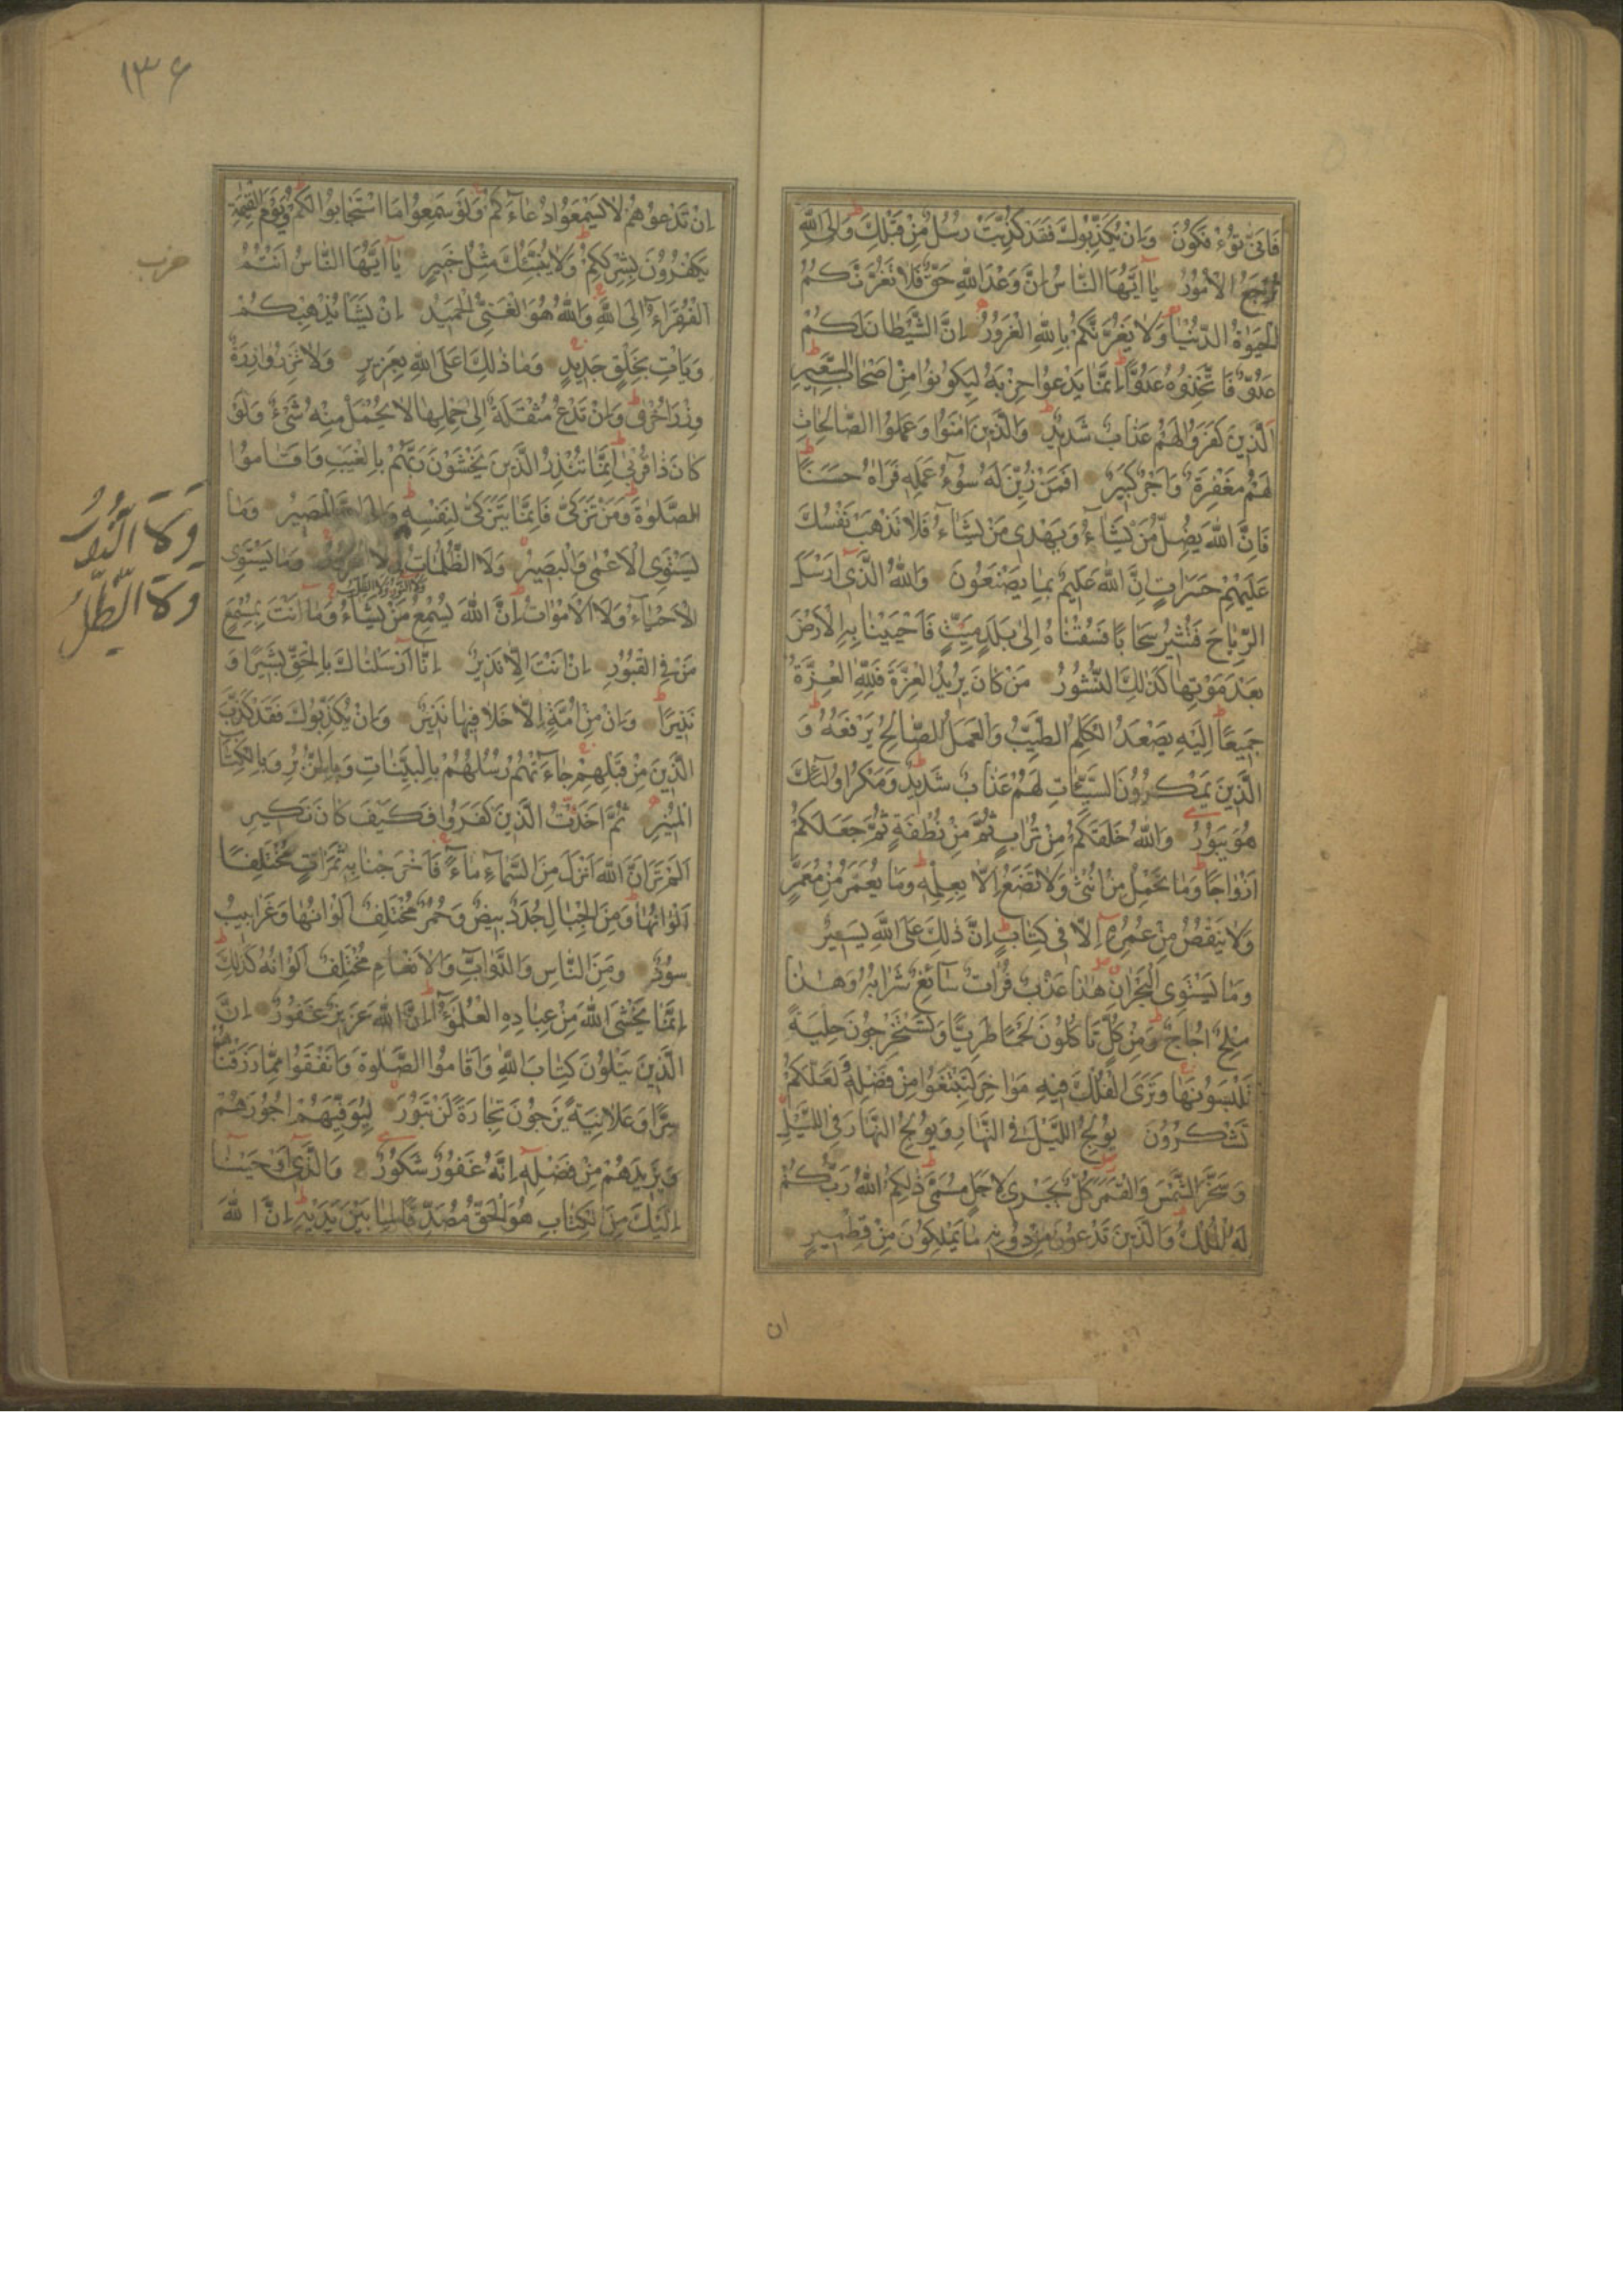 فَاَنّٰى تُؤْفَكُونَ وَاِنْ يُكَذِّبُوكَ فَقَدْ كُذِّبَتْ رُسُلٌ مِنْ قَبْلِكَ وَاِلَى اللّٰهِ
تُرْجَعُ الْاُمُورُ يٰا اَيُّهَا النّٰاسُ اِنَّ وَعْدَ اللّٰهِ حَقٌّ فَلٰا تَغُرَّنَّكُمُ
الْحَيٰوةُ الدُّنْيٰا وَلٰا يَغُرَّنَّكُمْ بِاللّٰهِ الْغَرُورُ اِنَّ الشَّيْطٰانَ لَكُمْ
عَدُوٌّ فَاتَّخِذُوهُ عَدُوًّا اِنَّمٰا يَدْعُوا حِزْبَهُ لِيَكُونُوا مِنْ اَصْحٰابِ السَّعِيرِ
اَلَّذِينَ كَفَرُوا لَهُمْ عَذٰابٌ شَدِيدٌ وَالَّذِينَ اٰمَنُوا وَعَمِلُوا الصّٰالِحٰاتِ
لَهُمْ مَغْفِرَةٌ وَاَجْرٌ كَبِيرٌ اَفَمَنْ زُيِّنَ لَهُ سُوۤءُ عَمَلِهِ فَرَاٰهُ حَسَنًا
فَاِنَّ اللّٰهَ يُضِلُّ مَنْ يَشٰاۤءُ وَيَهْدِى مَنْ يَشٰاۤءُ فَلٰا تَذْهَبْ نَفْسُكَ
عَلَيْهِمْ حَسَرٰاتٍ اِنَّ اللّٰهَ عَلِيمٌ بِمٰا يَصْنَعُونَ وَاللّٰهُ الَّذِى اَرْسَلَ
الرِّيٰاحَ فَتُثِيرُ سَحٰابًا فَسُقْنٰاهُ اِلٰى بَلَدٍ مَيِّتٍ فَاَحْيَيْنٰا بِهِ الْاَرْضَ
بَعْدَ مَوْتِهٰا كَذٰلِكَ النُّشُورُ مَنْ كٰانَ يُرِيدُ الْعِزَّةَ فَلِلّٰهِ الْعِزَّةُ
جَمِيعًا اِلَيْهِ يَصْعَدُ الْكَلِمُ الطَّيِّبُ وَالْعَمَلُ الصّٰالِحُ يَرْفَعُهُ وَ
الَّذِينَ يَمْكُرُونَ السَّيِّئٰاتِ لَهُمْ عَذٰابٌ شَدِيدٌ وَمَكْرُ اُولٰۤئِكَ
هُوَ يَبُورُ وَاللّٰهُ خَلَقَكُمْ مِنْ تُرٰابٍ ثُمَّ مِنْ نُطْفَةٍ ثُمَّ جَعَلَكُمْ
اَزْوٰاجًا وَمٰا تَحْمِلُ مِنْ اُنْثٰى وَلٰا تَضَعُ اِلّٰا بِعِلْمِهِ وَمٰا يُعَمَّرُ مِنْ مُعَمَّرٍ
وَلٰا يُنْقَصُ مِنْ عُمُرِهِ اِلّٰا فِى كِتٰابٍ اِنَّ ذٰلِكَ عَلَى اللّٰهِ يَسِيرٌ
وَمٰا يَسْتَوِى الْبَحْرٰانِ هٰذٰا عَذْبٌ فُرٰاتٌ سٰاۤئِغٌ شَرٰابُهُ وَهٰذٰا
مِلْحٌ اُجٰاجٌ وَمِنْ كُلٍّ تَاْكُلُونَ لَحْمًا طَرِيًّا وَتَسْتَخْرِجُونَ حِلْيَةً
تَلْبَسُونَهٰا وَتَرَى الْفُلْكَ فِيهِ مَوٰاخِرَ لِتَبْتَغُوا مِنْ فَضْلِهِ وَلَعَلَّكُمْ
تَشْكُرُونَ يُولِجُ اللَّيْلَ فِى النَّهٰارِ وَيُولِجُ النَّهٰارَ فِى اللَّيْلِ
وَسَخَّرَ الشَّمْسَ وَالْقَمَرَ كُلٌّ يَجْرِى لِاَجَلٍ مُسَمًّى ذٰلِكُمُ اللّٰهُ رَبُّكُمْ
لَهُ الْمُلْكُ وَالَّذِينَ تَدْعُونَ مِنْ دُونِهِ مٰا يَمْلِكُونَ مِنْ قِطْمِيرٍ
ان
۱۳۶
اِنْ تَدْعُوهُمْ لٰا يَسْمَعُوا دُعٰاۤءَكُمْ وَلَوْ سَمِعُوا مَا اسْتَجٰابُوا لَكُمْ وَيَوْمَ الْقِيٰمَةِ
يَكْفُرُونَ بِشِرْكِكُمْ وَلٰا يُنَبِّئُكَ مِثْلُ خَبِيرٍ يٰا اَيُّهَا النّٰاسُ اَنْتُمُ
حزب
الْفُقَرٰاۤءُ اِلَى اللّٰهِ وَاللّٰهُ هُوَ الْغَنِىُّ الْحَمِيدُ اِنْ يَشَاْ يُذْهِبْكُمْ
وَيَاْتِ بِخَلْقٍ جَدِيدٍ وَمٰا ذٰلِكَ عَلَى اللّٰهِ بِعَزِيزٍ وَلٰا تَزِرُ وٰازِرَةٌ
وِزْرَ اُخْرٰى وَاِنْ تَدْعُ مُثْقَلَةٌ اِلٰى حِمْلِهٰا لٰا يُحْمَلْ مِنْهُ شَىْءٌ وَلَوْ
كٰانَ ذٰا قُرْبٰى اِنَّمٰا تُنْذِرُ الَّذِينَ يَخْشَوْنَ رَبَّهُمْ بِالْغَيْبِ وَاَقٰامُوا
الصَّلٰوةَ وَمَنْ تَزَكّٰى فَاِنَّمٰا يَتَزَكّٰى لِنَفْسِهِ وَاِلَى اللّٰهِ الْمَصِيرُ وَمٰا
يَسْتَوِى الْاَعْمٰى وَالْبَصِيرُ وَلَا الظُّلُمٰاتُ وَلَا وَمٰا يَسْتَوِى
وَلَا النُّورُ
وَلَا الظِّلُّ
وَلَا النُّورُ وَلَا الظِّلُّ
الْاَحْيٰاۤءُ وَلَا الْاَمْوٰاتُ اِنَّ اللّٰهَ يُسْمِعُ مَنْ يَشٰاۤءُ وَمٰا اَنْتَ بِمُسْمِعٍ
مَنْ فِى الْقُبُورِ اِنْ اَنْتَ اِلّٰا نَذِيرٌ اِنّٰا اَرْسَلْنٰاكَ بِالْحَقِّ بَشِيرًا وَ
نَذِيرًا وَاِنْ مِنْ اُمَّةٍ اِلّٰا خَلٰا فِيهٰا نَذِيرٌ وَاِنْ يُكَذِّبُوكَ فَقَدْ كَذَّبَ
الَّذِينَ مِنْ قَبْلِهِمْ جٰاۤءَتْهُمْ رُسُلُهُمْ بِالْبَيِّنٰاتِ وَبِالزُّبُرِ وَبِالْكِتٰابِ
الْمُنِيرِ ثُمَّ اَخَذْتُ الَّذِينَ كَفَرُوا فَكَيْفَ كٰانَ نَكِيرِ
اَلَمْ تَرَ اَنَّ اللّٰهَ اَنْزَلَ مِنَ السَّمٰاۤءِ مٰاۤءً فَاَخْرَجْنٰا بِهِ ثَمَرٰاتٍ مُخْتَلِفًا
اَلْوٰانُهٰا وَمِنَ الْجِبٰالِ جُدَدٌ بِيضٌ وَحُمْرٌ مُخْتَلِفٌ اَلْوٰانُهٰا وَغَرٰابِيبُ
سُودٌ وَمِنَ النّٰاسِ وَالدَّوٰابِّ وَالْاَنْعٰامِ مُخْتَلِفٌ اَلْوٰانُهُ كَذٰلِكَ
اِنَّمٰا يَخْشَى اللّٰهَ مِنْ عِبٰادِهِ الْعُلَمٰۤؤُا اِنَّ اللّٰهَ عَزِيزٌ غَفُورٌ اِنَّ
الَّذِينَ يَتْلُونَ كِتٰابَ اللّٰهِ وَاَقٰامُوا الصَّلٰوةَ وَاَنْفَقُوا مِمّٰا رَزَقْنٰاهُمْ
سِرًّا وَعَلٰانِيَةً يَرْجُونَ تِجٰارَةً لَنْ تَبُورَ لِيُوَفِّيَهُمْ اُجُورَهُمْ
وَيَزِيدَهُمْ مِنْ فَضْلِهِ اِنَّهُ غَفُورٌ شَكُورٌ وَالَّذِى اَوْحَيْنٰا
اِلَيْكَ مِنَ الْكِتٰابِ هُوَ الْحَقُّ مُصَدِّقًا لِمٰا بَيْنَ يَدَيْهِ اِنَّ اللّٰهَ